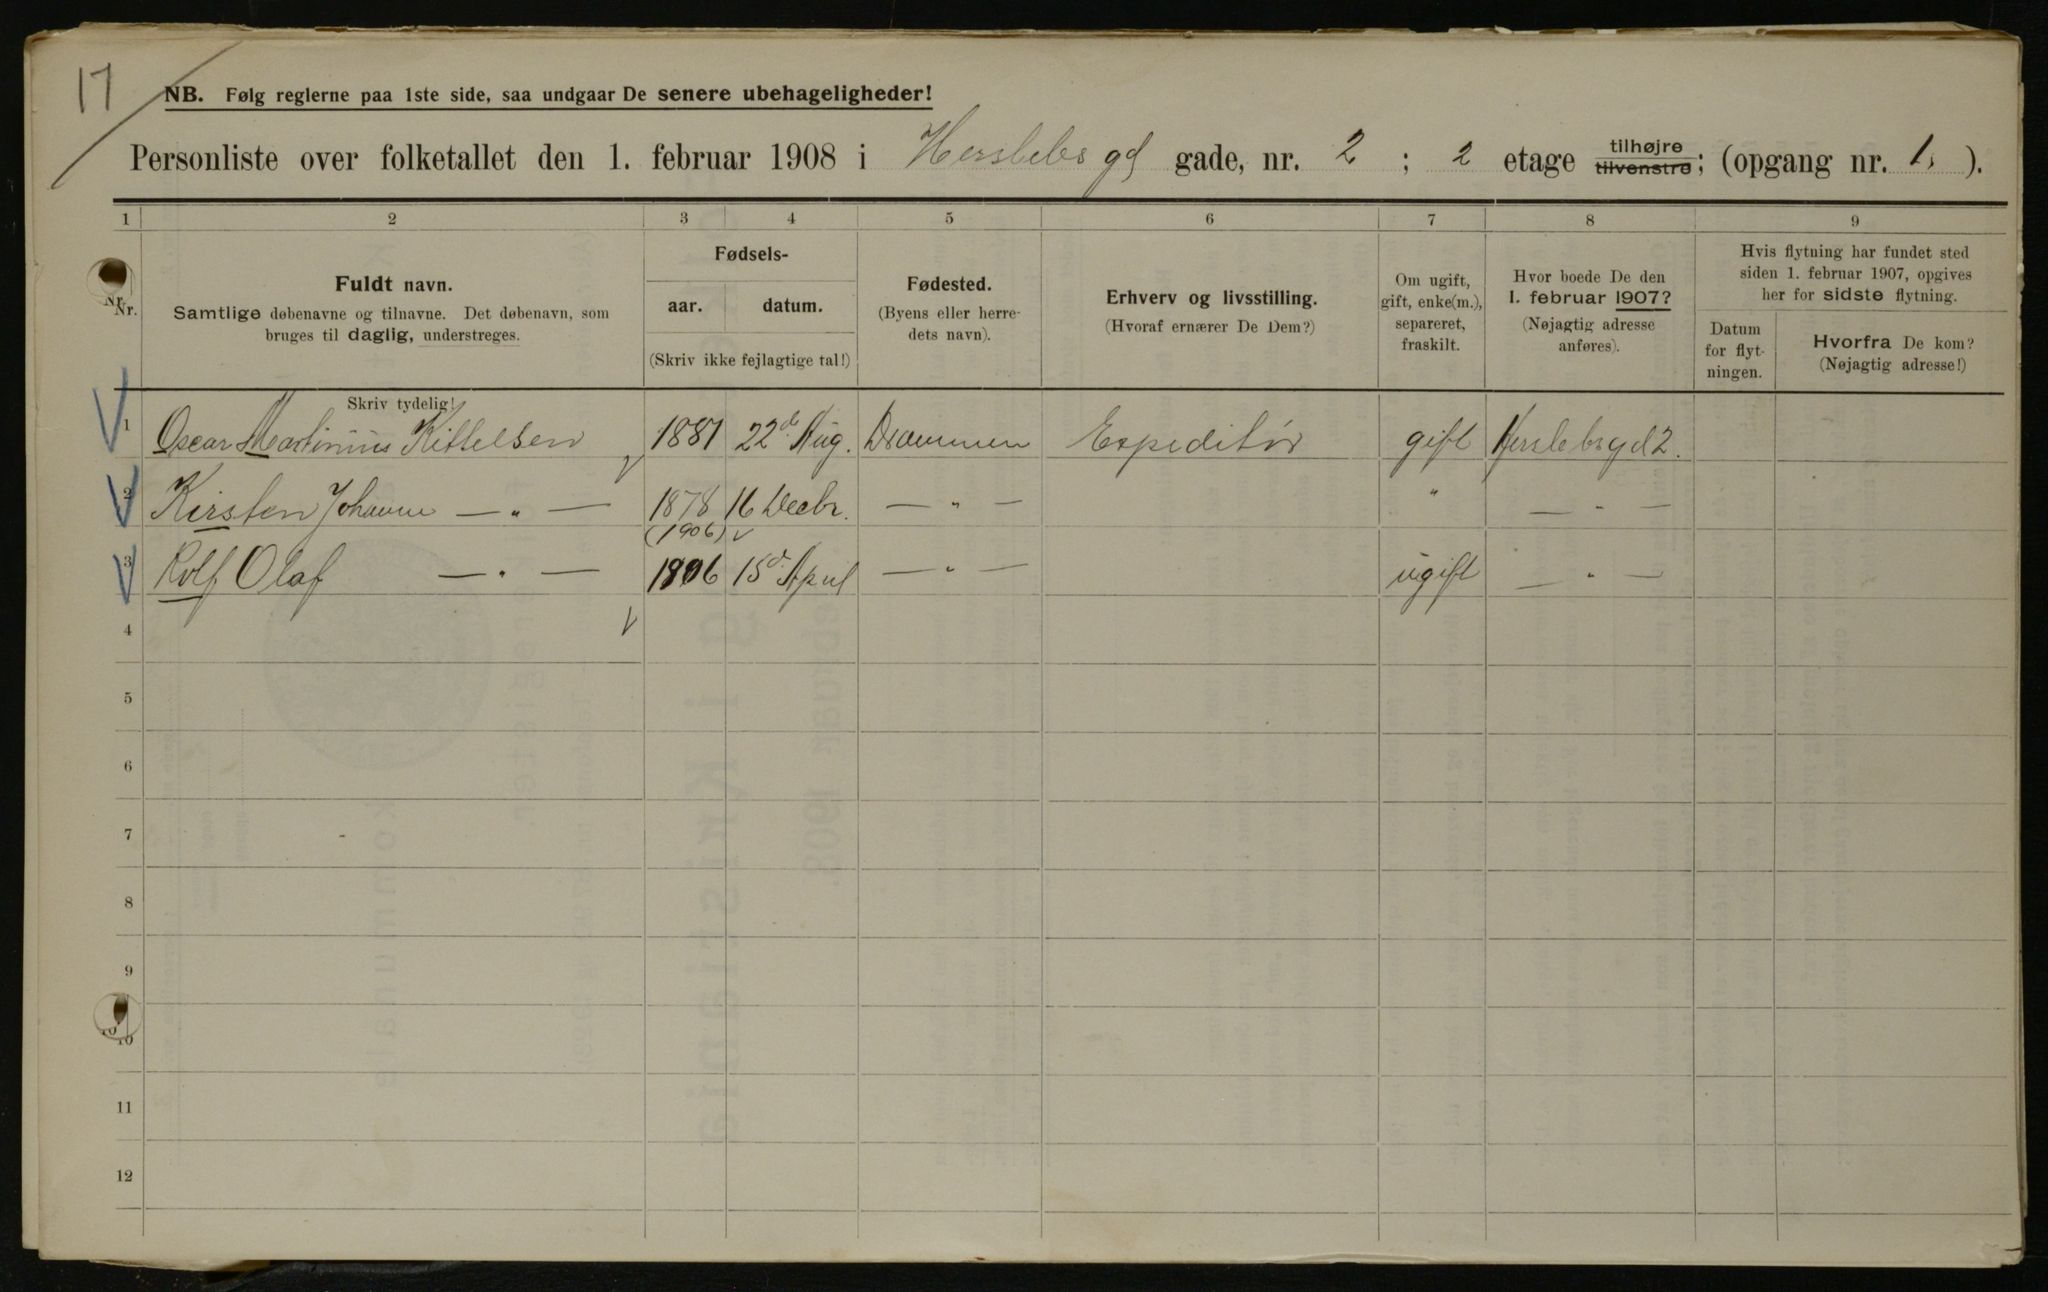 17
NB. Følg reglerne paa 1ste side, saa undgaar De senere ubehageligheder!
Personliste over folketallet den 1. februar 1908 i Herslebs gd gade, nr. 2 ; 2 etage tilhøjre tilvenstre; (opgang nr. 1. ).
1 2 3 4 5 6 7 8 9
Nr.
Nr.
Fuldt navn.
Samtlige døbenavne og tilnavne. Det døbenavn, som
bruges til daglig, understreges.
Skriv tydelig!
Fødsels-
aar. datum.
(Skriv ikke fejlagtige tal!)
Fødested.
(Byens eller herre-
dets navn).
Erhverv og livsstilling.
(Hvoraf ernærer De Dem?)
Om ugift,
gift, enke(m.),
separeret,
fraskilt.
Hvor boede De den
1. februar 1907?
(Nøjagtig adresse
anføres).
Hvis flytning har fundet sted
siden 1. februar 1907, opgives
her for sidste flytning.
Datum
for flyt-
ningen.
Hvorfra De kom?
(Nøjagtig adresse!)
1 Oscar Martinius Kittelsen 1881 22de Aug. Drammen Expeditør gift Herslebsgd 2.
2 Kirsten Johanne — " — 1878 16 Decbr. — " — " — " —
(1906)
3 Rolf Olaf — " — 1806 15d April — " — ugift — " —
4
5
6
7
8
9
10
11
12